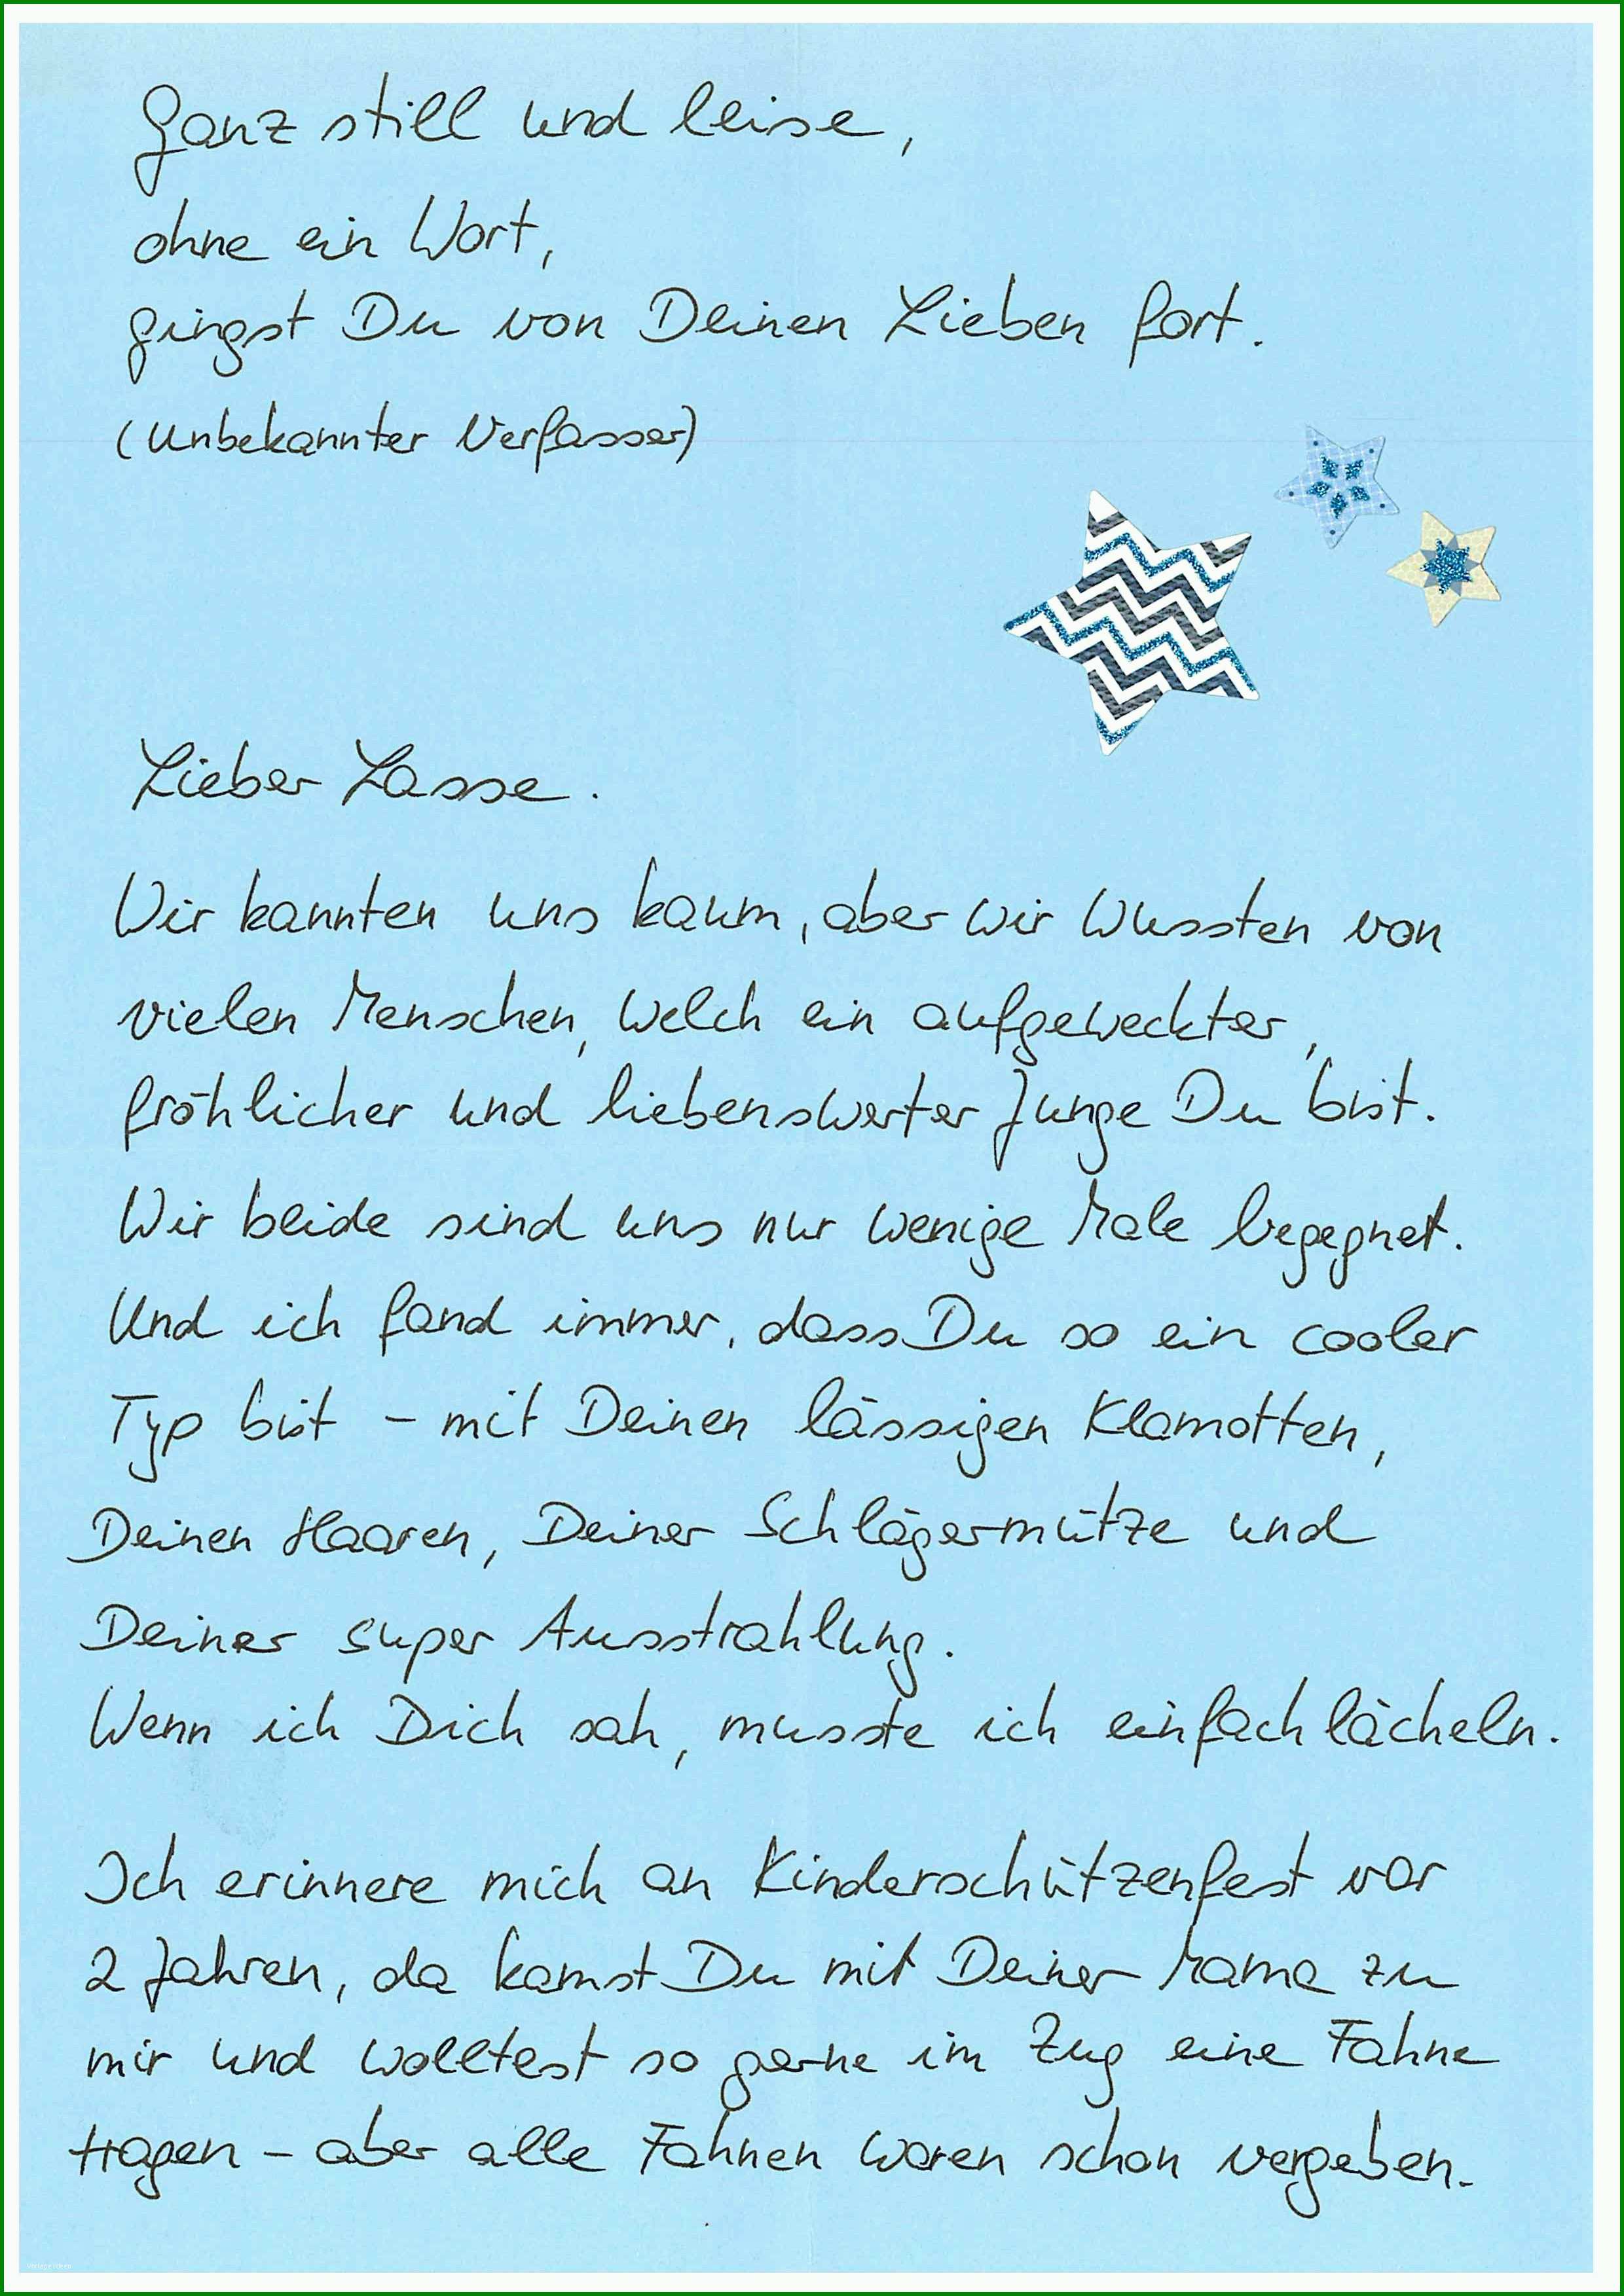 Ganz still und leise,
ohne ein Wort,
gingst Du von Deinen Lieben fort.
(Unbekannter Verfasser)
Lieber Lasse.
Wir kannten uns kaum, aber wir wussten von
vielen Menschen, welch ein aufgeweckter,
fröhlicher und liebenswerter Junge Du bist.
Wir beide sind uns nur wenige Male begegnet.
Und ich fand immer, dass Du so ein cooler
Typ bist – mit Deinen lässigen Klamotten,
Deinen Haaren, Deiner Schlägermütze und
Deiner super Ausstrahlung.
Wenn ich Dich sah, musste ich einfach lächeln.
Ich erinnere mich an Kinderschützenfest vor
2 Jahren, da kamst Du mit Deiner Mama zu
mir und wolltest so gerne im Zug eine Fahne
tragen – aber alle Fahnen waren schon vergeben.